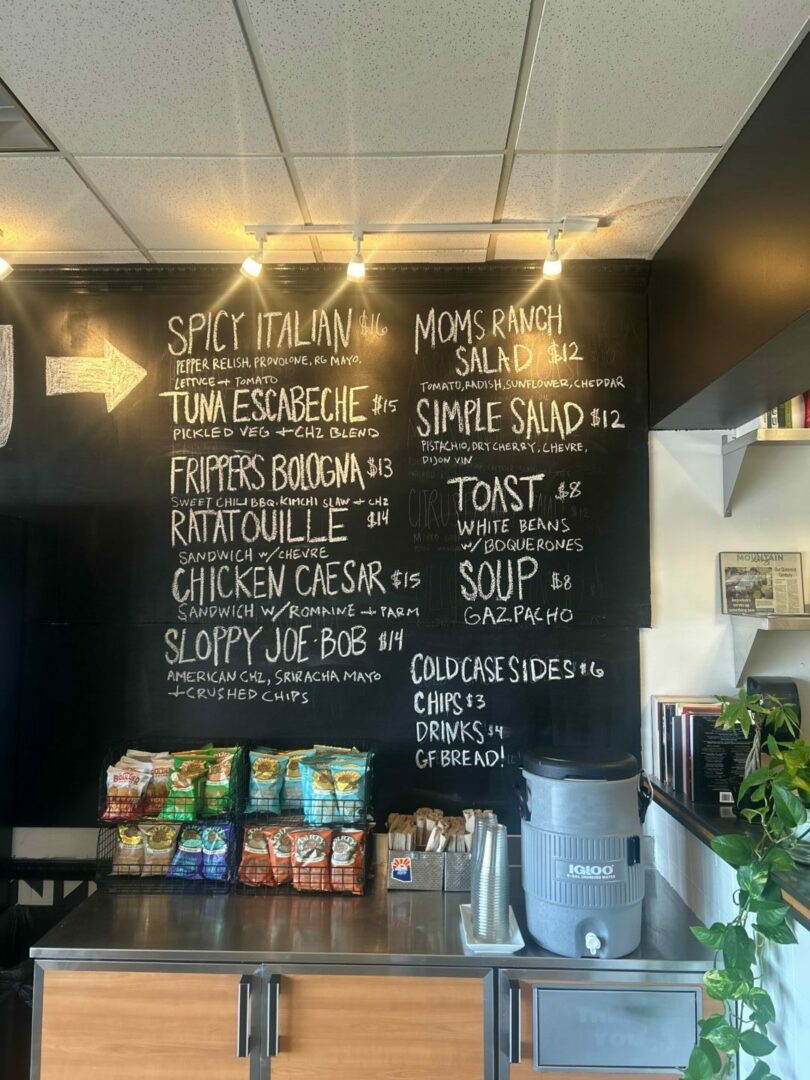 SPICY ITALIAN $16
PEPPER RELISH, PROVOLONE, RG MAYO,
LETTUCE + TOMATO
TUNA ESCABECHE $15
PICKLED VEG + CHZ BLEND
FRIPPERS BOLOGNA $13
SWEET CHILI BBQ, KIMCHI SLAW + CHZ
RATATOUILLE $14
SANDWICH W/CHEVRE
CHICKEN CAESAR $15
SANDWICH W/ROMAINE + PARM
SLOPPY JOE·BOB $14
AMERICAN CHZ, SRIRACHA MAYO
+ CRUSHED CHIPS
MOMS RANCH
SALAD $12
TOMATO, RADISH, SUNFLOWER, CHEDDAR
SIMPLE SALAD $12
PISTACHIO, DRY CHERRY, CHEVRE,
DIJON VIN
TOAST $8
WHITE BEANS
W/ BOQUERONES
SOUP $8
GAZPACHO
COLD CASE SIDES $6
CHIPS $3
DRINKS $4
GF BREAD!
IGLOO
MOUNTAIN